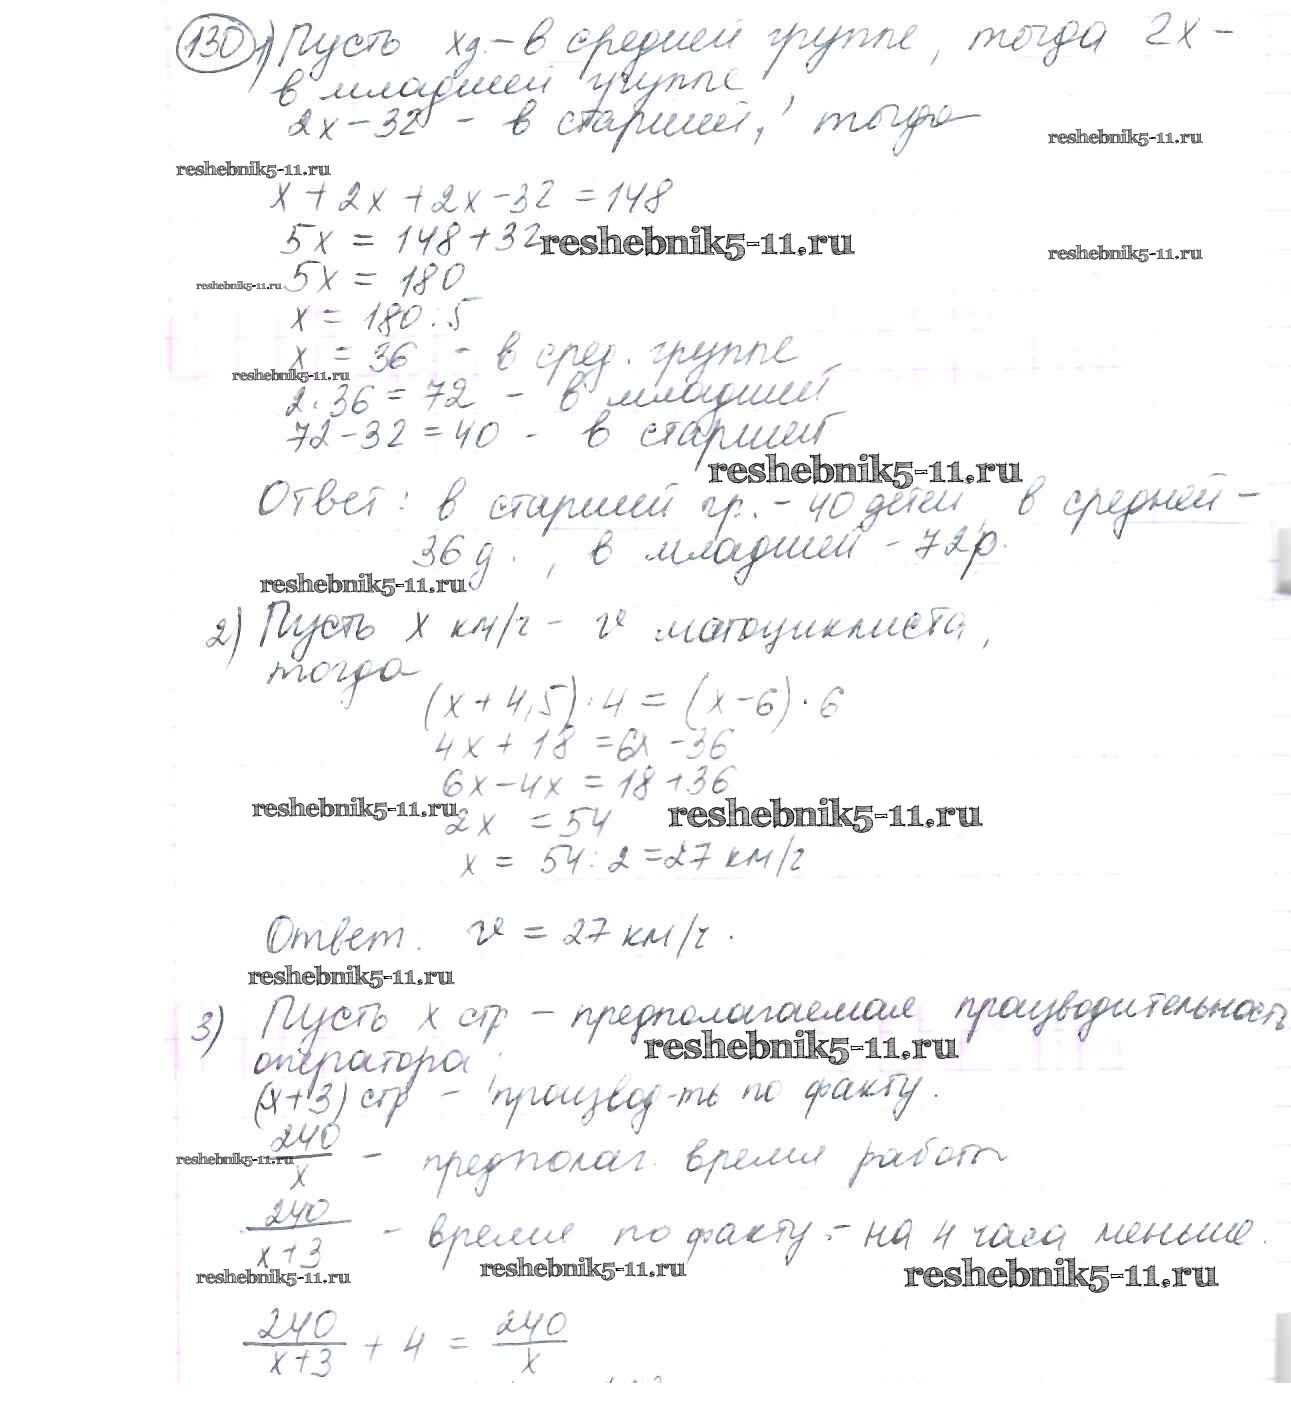 130 1) Пусть x д. – в средней группе, тогда 2x –
в младшей группе,
2x – 32 – в старшей, тогда
reshebnik5-11.ru
reshebnik5-11.ru
x + 2x + 2x – 32 = 148
5x = 148 + 32
reshebnik5-11.ru
reshebnik5-11.ru
reshebnik5-11.ru
5x = 180
x = 180 : 5
x = 36 – в сред. группе
reshebnik5-11.ru
2 · 36 = 72 – в младшей
72 – 32 = 40 – в старшей
reshebnik5-11.ru
Ответ: в старшей гр. – 40 детей, в средней –
36 д., в младшей – 72 р.
reshebnik5-11.ru
2) Пусть x км/ч – v матоциклиста,
тогда
(x + 4,5) · 4 = (x – 6) · 6
4x + 18 = 6x – 36
6x – 4x = 18 + 36
reshebnik5-11.ru
reshebnik5-11.ru
2x = 54
x = 54 : 2 = 27 км/ч
Ответ. v = 27 км/ч.
reshebnik5-11.ru
3) Пусть x стр – предполагаемая производительность
оператора,
reshebnik5-11.ru
(x + 3) стр – производ-ть по факту.
reshebnik5-11.ru
240/x – предполаг. время работы
240/(x + 3) – время по факту – на 4 часа меньше.
reshebnik5-11.ru
reshebnik5-11.ru
reshebnik5-11.ru
240/(x + 3) + 4 = 240/x